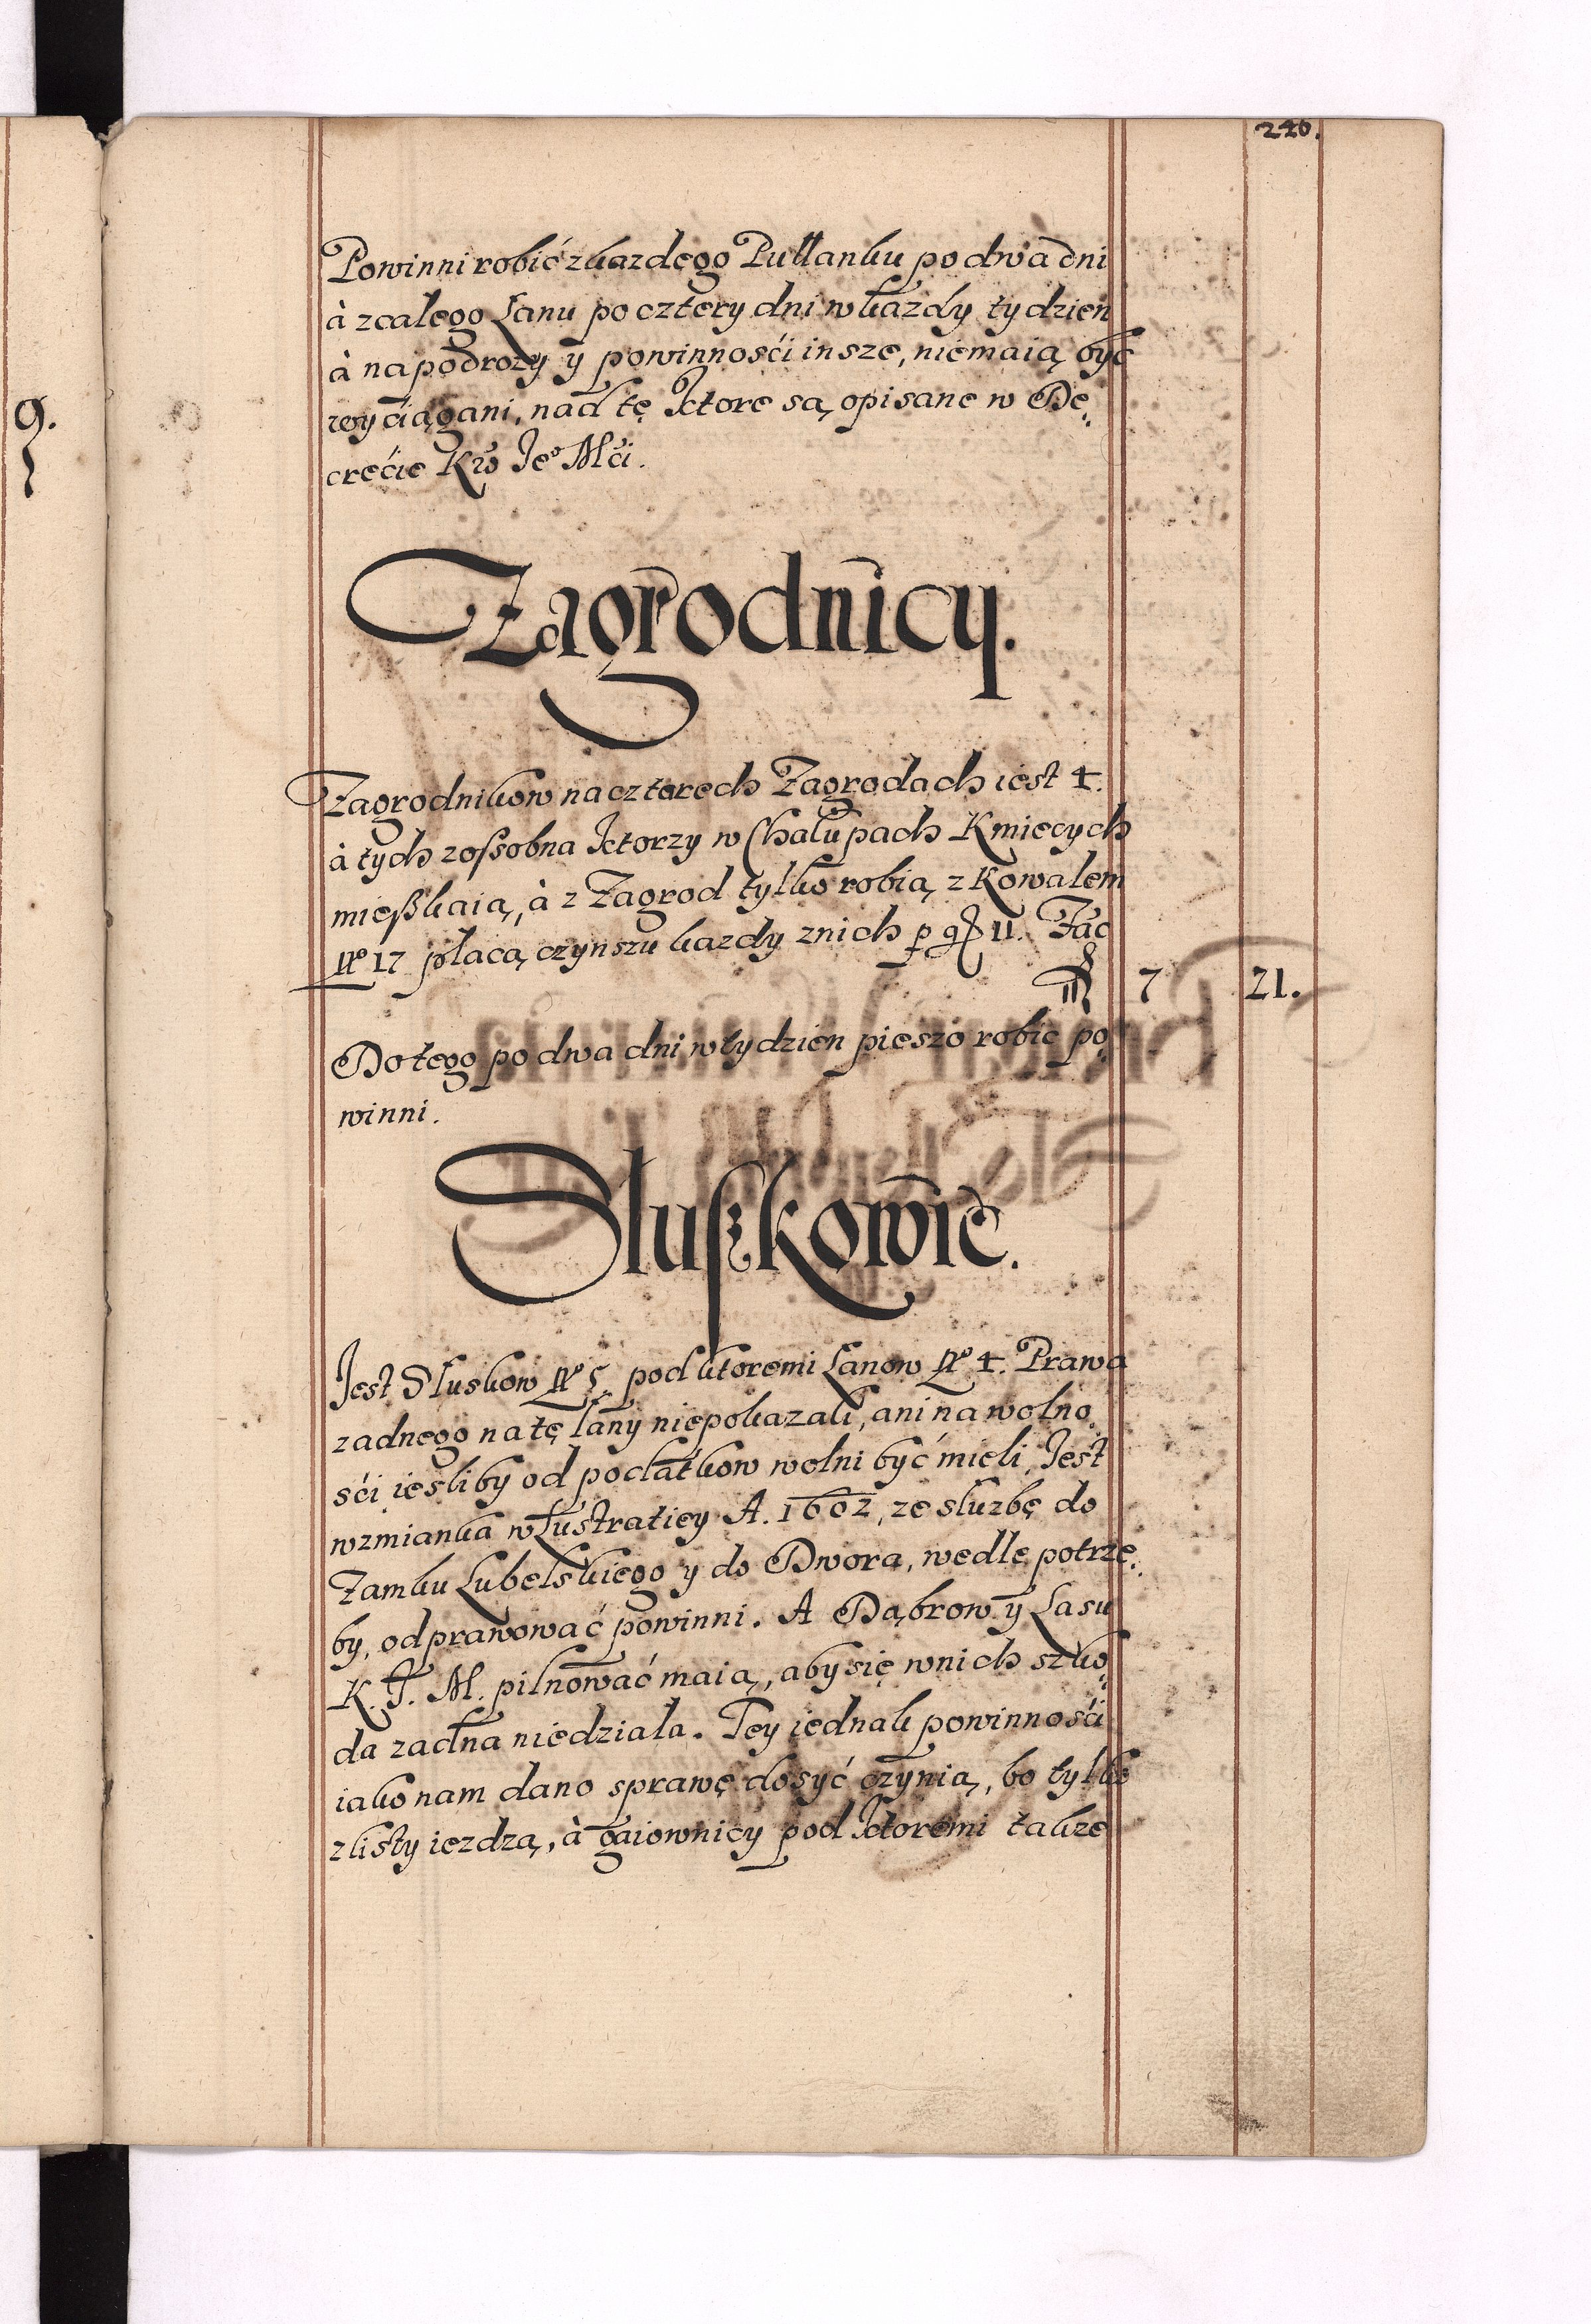 240.
Powinni robić z kazdego Pułłanku po dwa dni
à z całego Łanu po cztery dni w kazdy tydzien
à na podrozy y powinnosći insze, niemaią być
wyciągani, nad tę Ktore są opisane w De,
crećie Kr Jeo Mći.
Zagrodnicy.
Zagrodnikow na czterech Zagrodach iest 4.
à tych zossobna Ktorzy w Chałupach Kmiecych
mießkaią, à z Zagrod tylko robią z Kowalem
No 17 płacą czynszu kazdy z nich p gr 11. Fac
fl 7 21.
Do tego po dwa dni w tydzien pieszo robic po,
winni.
Słußkowie.
Jest Sluskow No 5 pod ktoremi Łanow No 4. Prawa
zadnego na tę łany niepokazali, ani na wolno,
sći iesliby od podatkow wolni być mieli. Jest
wzmianka w Lustratiey A. 1602, ze sluzbę do
Zamku Lubelskiego y do Dwora, wedle potrze,
by, odprawować powinni. A Dąbrow y Lasu
K. J. M. pilnować maią, aby się w nich szko,
da zadna niedziała. Tey iednak powinnosći
iako nam dano sprawę dosyć czynią, bo tylko
z listy iezdzą, à gaiownicy pod Ktoremi takze
9.